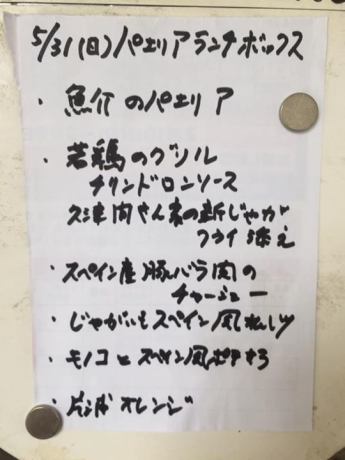 5/31(日)パエリアランチボックス
・魚介のパエリア
・若鶏のグリル
チリンドロンソース
久津間さん家の新じゃが
フライ添え
・スペイン産豚バラ肉の
チャーシュー
・じゃがいもスペイン風オムレツ
・キノコとスペイン風ポテサラ
・オレンジ